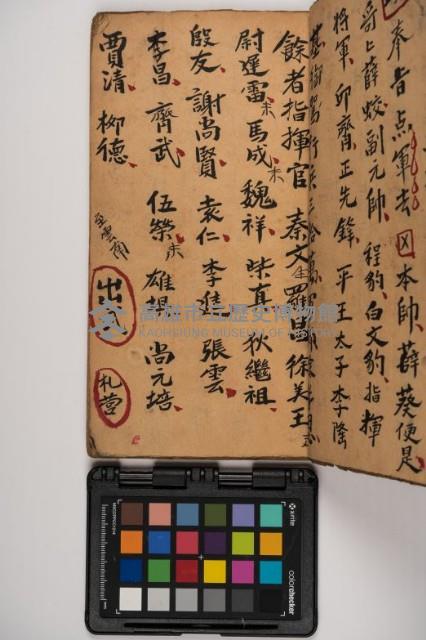 奉旨点軍去 囚本帥、薛葵便是、
爵上薛蛟副元帥、程豹、白文豹、指揮
將軍、卯齊、正先鋒、平王太子李隆
餘者指揮官 秦文 羅昌 徐美王
尉遲雷未 馬成未 魏祥、柴真、狄繼祖、
殷友、謝尚賢、袁仁、李進、張雲、
李昌、齊武 伍榮未 雄 尚元培、
賈清、柳德、
至雲南
出
札营
高雄市立歷史博物館
KAOHSIUNG MUSEUM OF HISTORY
x-rite
colorchecker